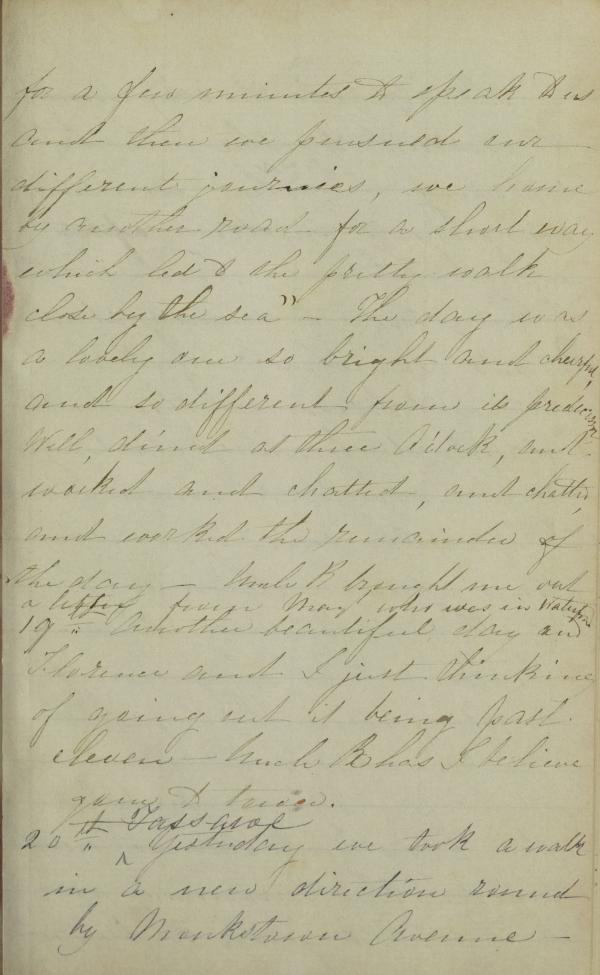 for a few minutes to speak to us
and then we pursued our
different journies, we home
by another road for a short way
which led to the pretty walk
close by the sea" – The day was
a lovely one so bright and cheerful,
and so different from its predecessor
Well, dined at three O'clock, and
worked and chatted, and chatted,
and worked the remainder of
the day — Uncle B brought me out
a letter from May who was in Waterford
19th Another beautiful day and
Florence and I just thinking
of going out it being past
eleven — Uncle B has I believe
gone to town.
20th Yesterday we took a walk
in a new direction round
by Monkstown Avenue —